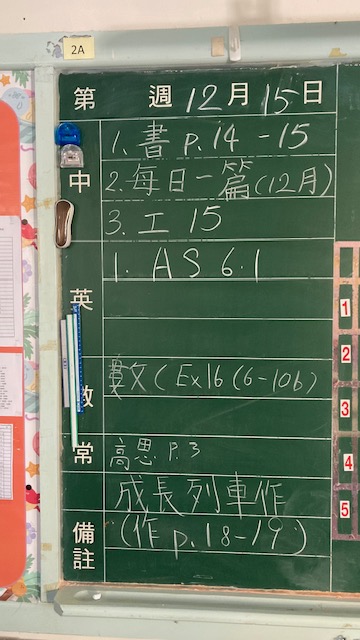 2A
第 週 12月 15日
中
1. 書 p.14-15
2. 每日一篇(12月)
3. 工 15
英
1. AS 6.1
數
數文 (Ex16 (6-10b)
常
高思 P.3
成長列車作
備註
(作 p.18-19)
1
2
3
4
5